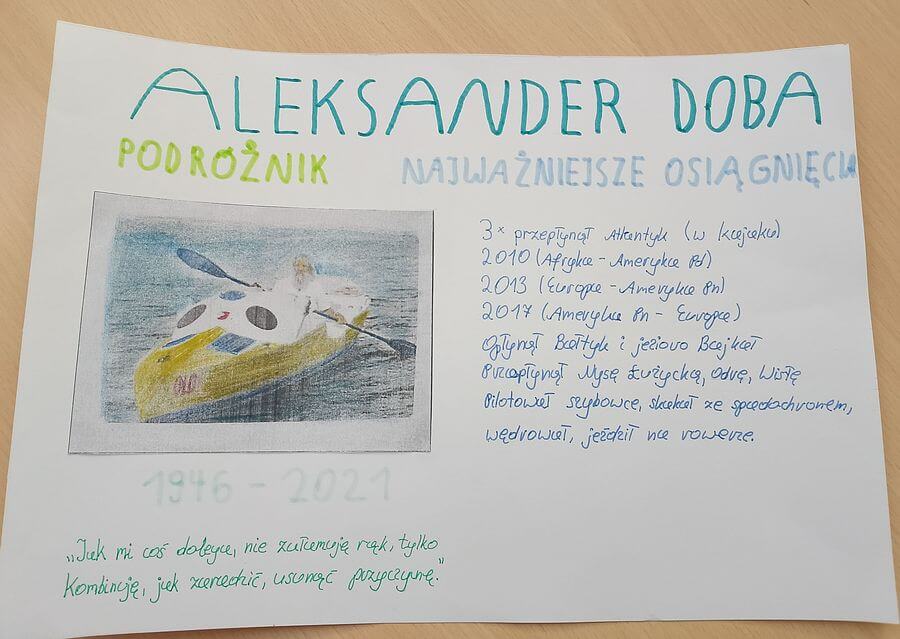 ALEKSANDER DOBA
PODRÓŻNIK
NAJWAŻNIEJSZE OSIĄGNIĘCIA
3x przepłynął Atlantyk (w kajaku)
2010 (Afryka - Ameryka Pd)
2013 (Europa - Ameryka Pn)
2017 (Ameryka Pn - Europa)
Opłynął Bałtyk i jezioro Bajkał
Przepłynął Nysę Łużycką, Odrę, Wisłę
Pilotował szybowce, skakał ze spadochronem,
wędrował, jeździł na rowerze.
OLO
1946 - 2021
„Jak mi coś dolega, nie załamuję rąk, tylko
kombinuję, jak zaradzić, usunąć przyczynę."